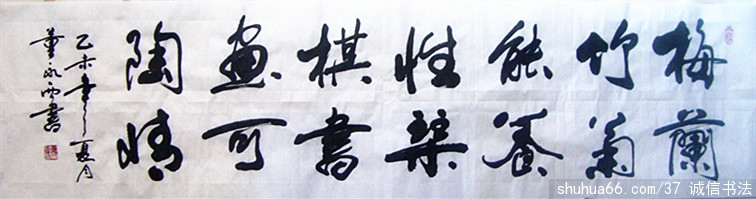 梅蘭
竹菊
能養
性琴
棋書
畫可
陶情
乙未年夏月
董永書
shuhua66.com/37 诚信书法